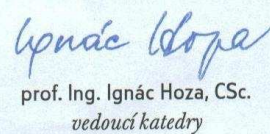 Ignác Hoza
prof. Ing. Ignác Hoza, CSc.
vedoucí katedry